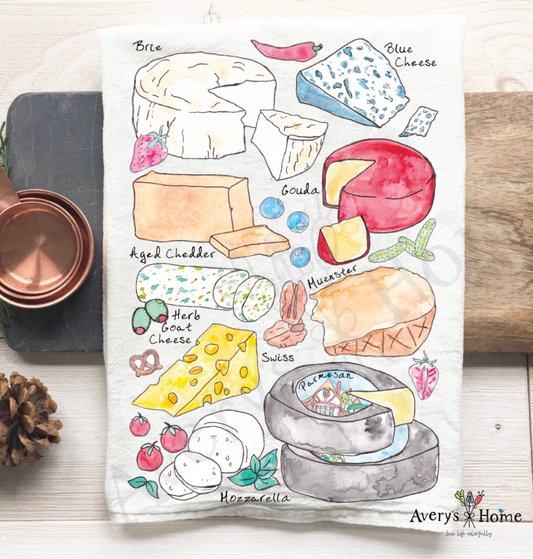 Brie
Blue
Cheese
Gouda
Aged Chedder
Muenster
Herb
Goat
Cheese
Swiss
Parmesan
Mozzarella
Avery's Home
live life colorfully